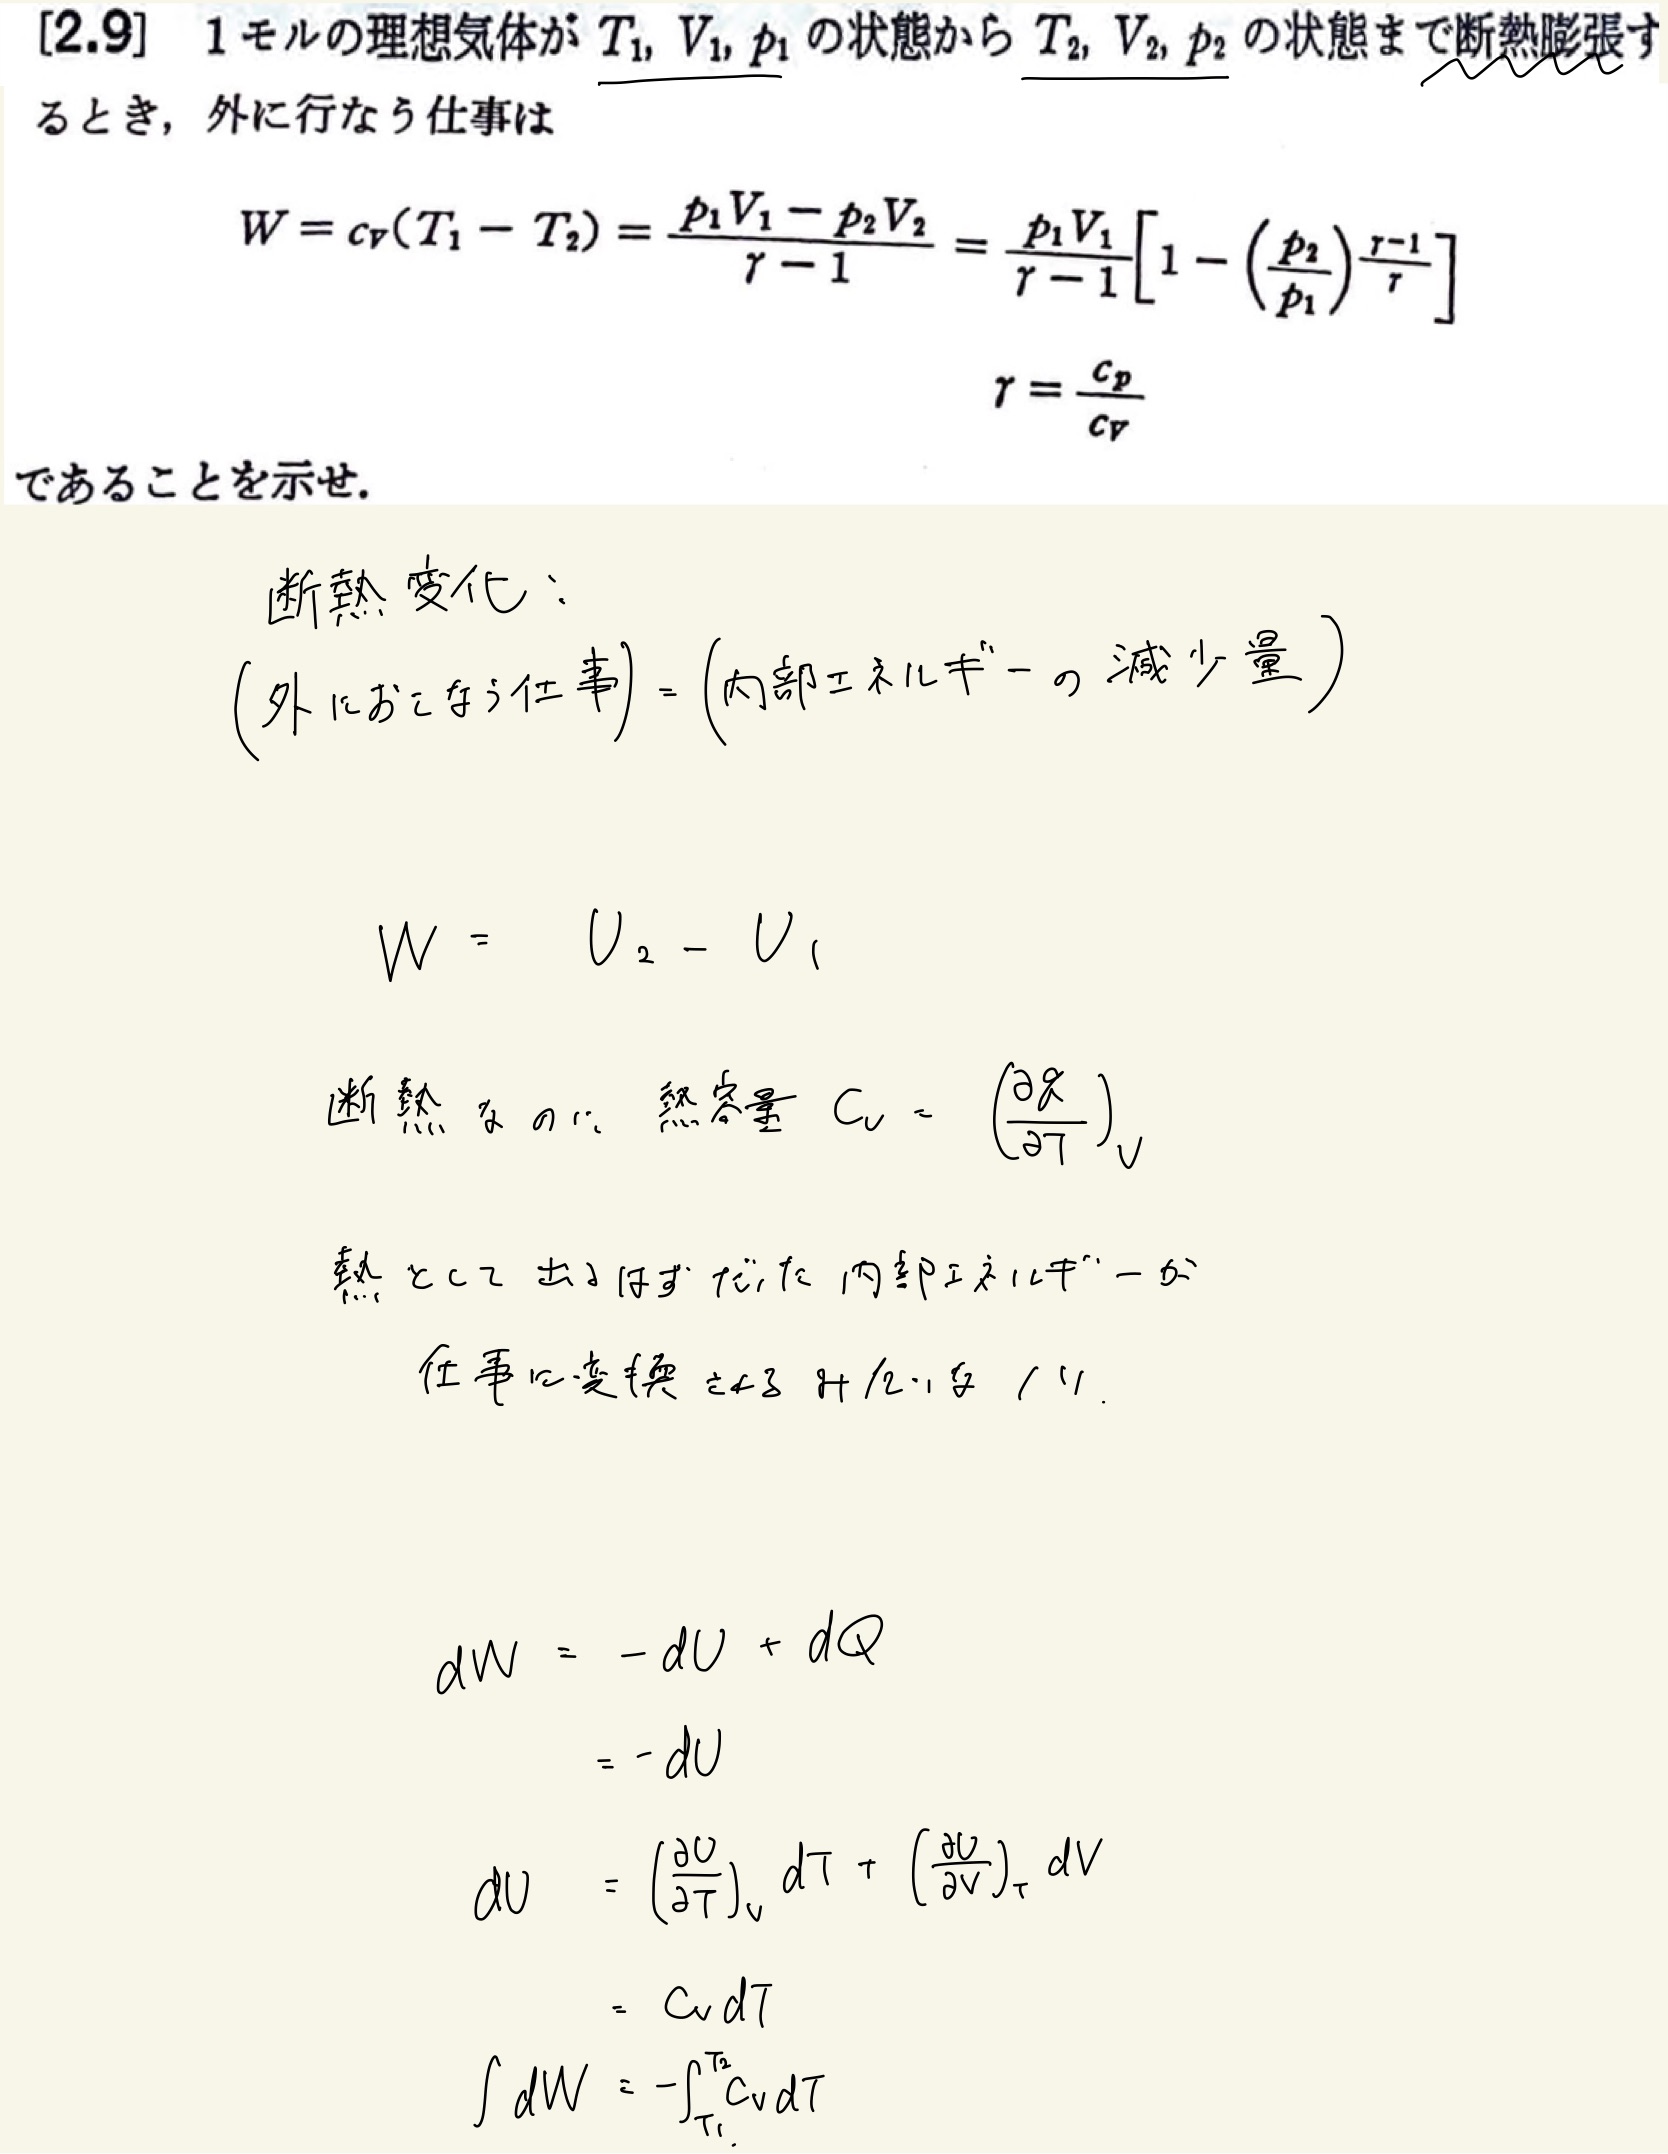 [2.9] 1モルの理想気体が T₁, V₁, p₁ の状態から T₂, V₂, p₂ の状態まで断熱膨張す
るとき，外に行なう仕事は
W = c_V(T₁ − T₂) = (p₁V₁ − p₂V₂)/(γ − 1) = (p₁V₁)/(γ − 1) [1 − (p₂/p₁)^((γ−1)/γ)]
γ = c_p/c_V
であることを示せ．
断熱変化：
(外におこなう仕事) = (内部エネルギーの減少量)
W = U₂ − U₁
断熱なのに 熱容量 C_V = (∂Q/∂T)_V
熱として出るはずだった内部エネルギーが
仕事に変換されるみたいなノリ.
dW = −dU + dQ
= −dU
dU = (∂U/∂T)_V dT + (∂U/∂V)_T dV
= C_V dT
∫dW = −∫_{T₁}^{T₂} C_V dT